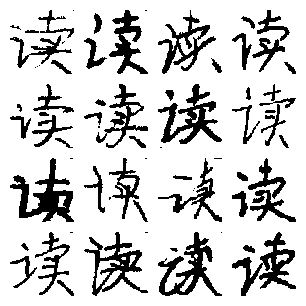 读读读读
读读读读
读读读读
读读读读